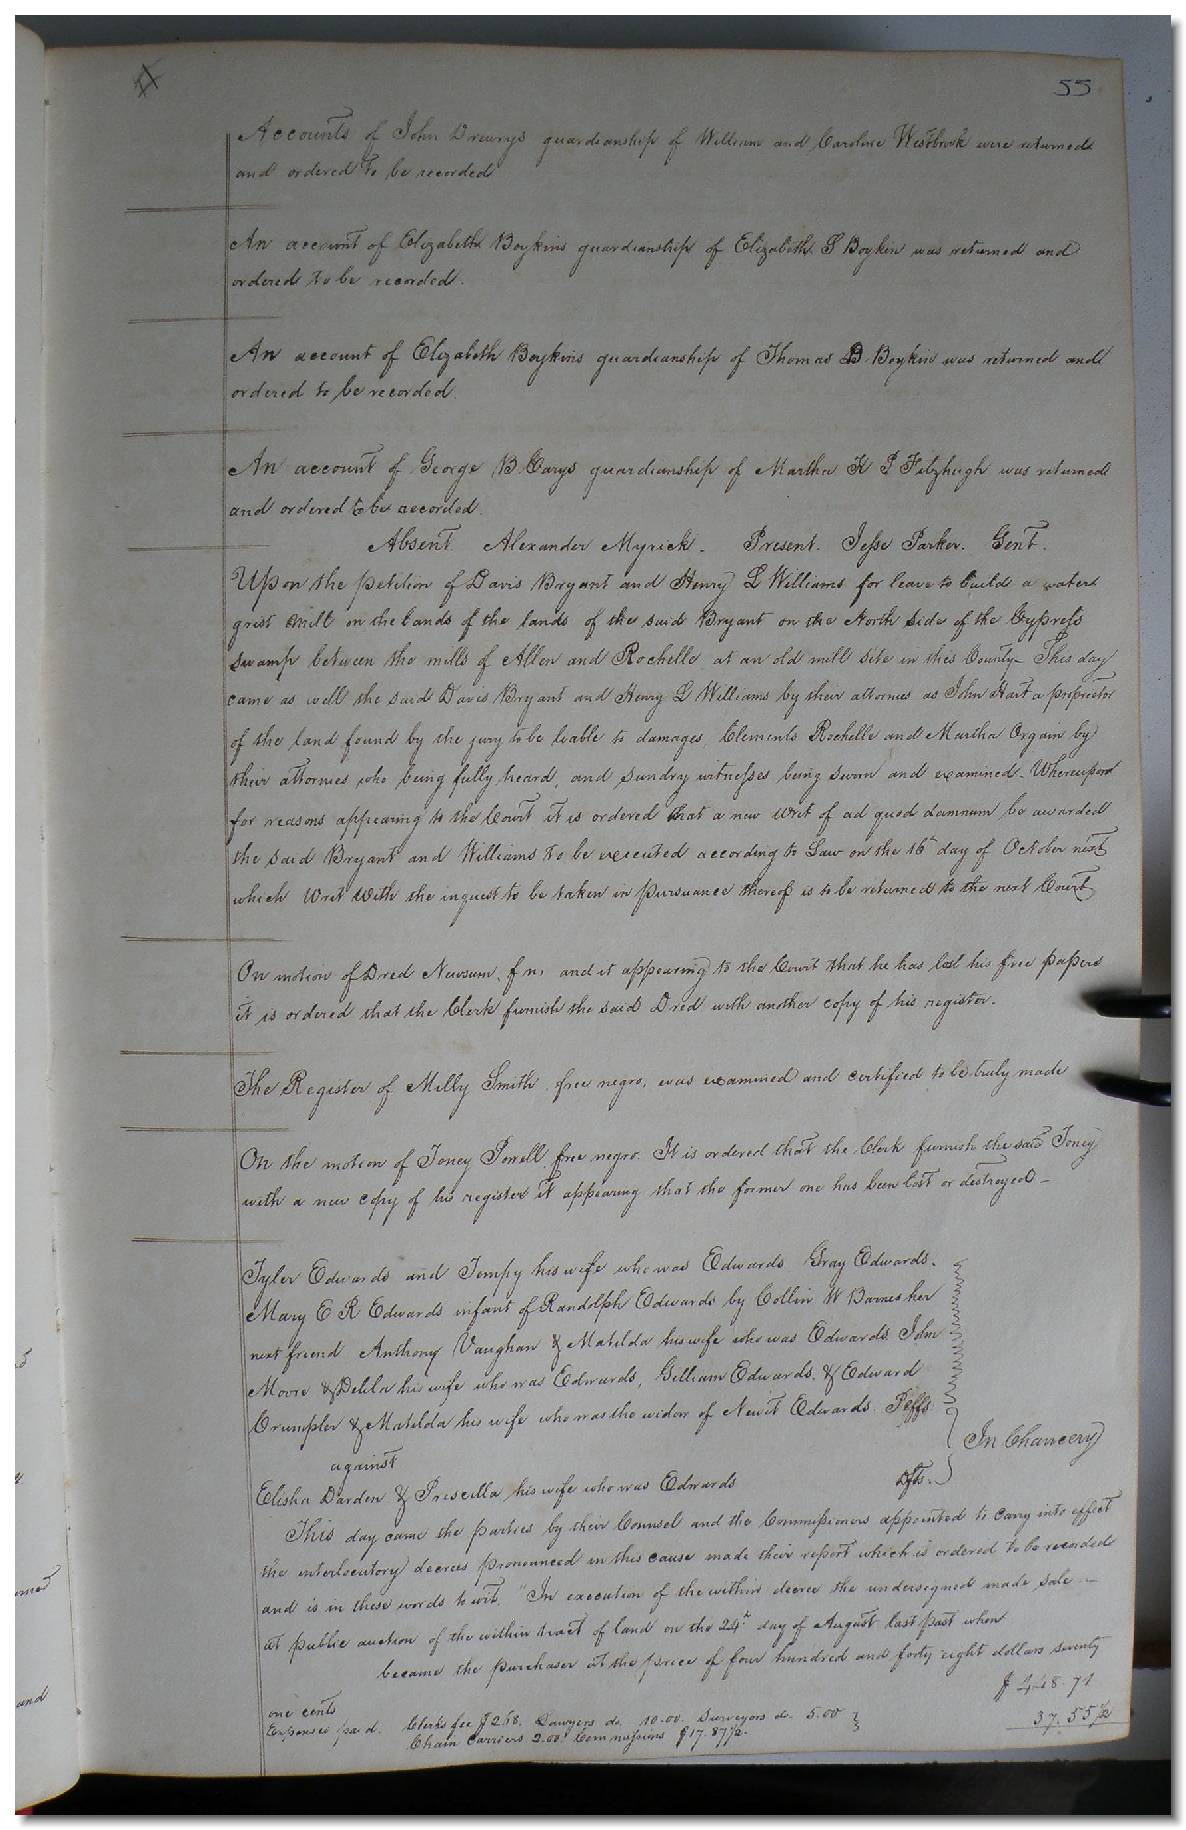 55
Accounts of John Drewrys guardianship of William and Caroline Westbrook were returned
and ordered to be recorded
An account of Elizabeth Boykins guardianship of Elizabeth S Boykin was returned and
ordered to be recorded.
An account of Elizabeth Boykins guardianship of Thomas B Boykin was returned and
ordered to be recorded.
An account of George B Carys guardianship of Martha H P Fitzhugh was returned
and ordered to be recorded.
Absent. Alexander Myrick. Present. Jesse Parker. Gent.
Upon the petition of Davis Bryant and Henry L Williams for leave to build a water
grist mill on the lands of the lands of the said Bryant on the North side of the Cypress
swamp between the mills of Allen and Rochelle at an old mill site in this County_ This day
came as well the said Davis Bryant and Henry L Williams by their attornies as John Hart a proprietor
of the land found by the jury to be liable to damages, Clements Rochelle and Martha Orgain by
their attornies who being fully heard, and sundry witnesses being sworn and examined_ Whereupon
for reasons appearing to the Court it is ordered that a new writ of ad quod damnum be awarded
the said Bryant and Williams to be executed according to Law on the 16th day of October next
which Writ with the inquest to be taken in pursuance thereof is to be returned to the next Court
On motion of Dred Newsum, f n, and it appearing to the Court that he has lost his free papers
it is ordered that the Clerk furnish the said Dred with another copy of his register.
The Register of Milly Smith, free negro, was examined and certified to be truly made
On the motion of Toney Powell, free negro. It is ordered that the Clerk furnish the said Toney
with a new copy of his register it appearing that the former one has been lost or destroyed_
Tyler Edwards and Tempy his wife who was Edwards Gray Edwards.
Mary E R Edwards infant of Randolph Edwards by Collin W Barnes her
next friend Anthony Vaughan & Matilda his wife who was Edwards John
Moore & Delila his wife who was Edwards, Gilliam Edwards, & Edward
Crumpler & Matilda his wife who was the widow of Newit Edwards. Plffs.
against
In Chancery
Elisha Darden & Priscilla his wife who was Edwards Dfts.
This day came the parties by their Counsel and the Commissioners appointed to carry into effect
the interlocutory decrees pronounced in this cause made their report which is ordered to be recorded
and is in these words to wit, "In execution of the within decree the undersigned made sale
at public auction of the within tract of land on the 24th day of August last past when
became the purchaser at the price of four hundred and forty eight dollars seventy
one cents $448.71
Expenses paid. Clerks fee $2.68. Lawyers do. 10.00. Surveyors do. 5.00 37.55½
Chain Carriers 2.00. Commissions $17.87½.